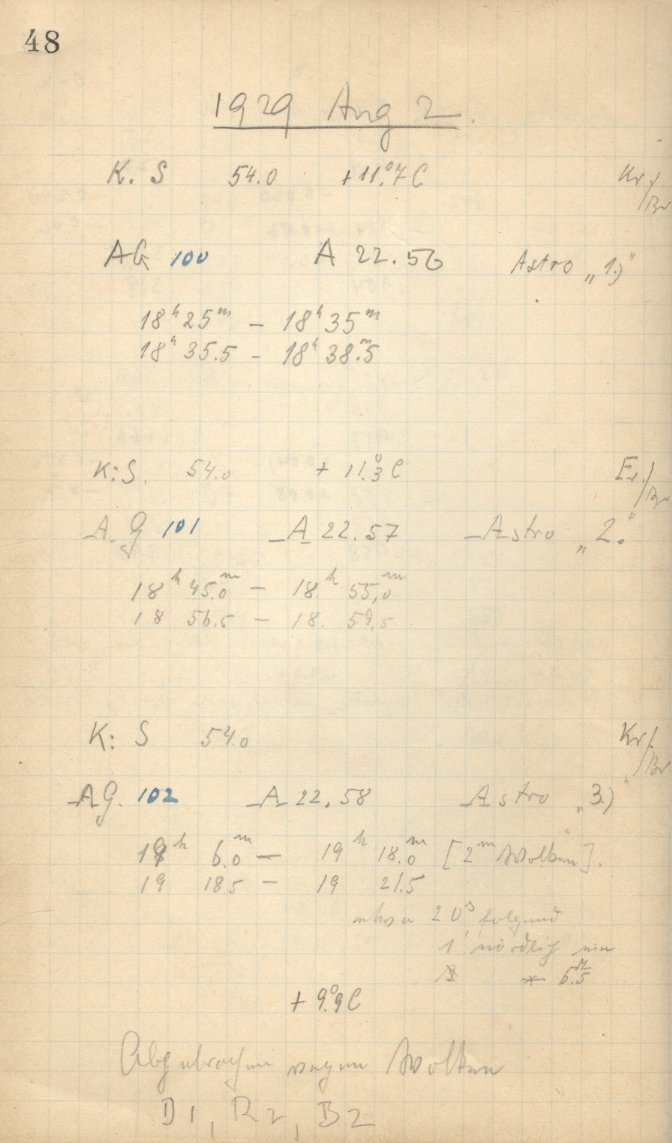 48
1929 Aug 2.
K. S 54.0 +11.°7 C Kr./Br
AG 100 A 22.56 Astro „1.)"
18ʰ25ᵐ – 18ʰ35ᵐ
18ʰ35.5 – 18ʰ38.ᵐ5
K:S. 54.0 + 11.°3 C Er./Br
A.G 101 A 22.57 Astro „2."
18ʰ 45.0ᵐ – 18ʰ 55.0ᵐ
18 56.5 – 18. 59.5
K: S 54.0 Kr./Br
AG. 102 A 22.58 Astro „3.)"
19ʰ 6.0ᵐ – 19ʰ 18.0ᵐ [2ᵐ Wolken].
19 18.5 – 19 21.5
etwa 20ˢ folgend
1' nördlich von
* 6.ᴹ5
+ 9.°9 C
Abgebrochen wegen Wolken
D1, R2, B2